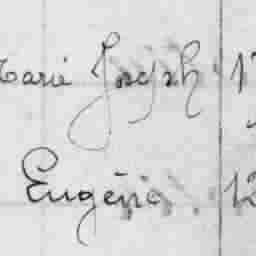 Marie Joseph 17
Eugénie 12